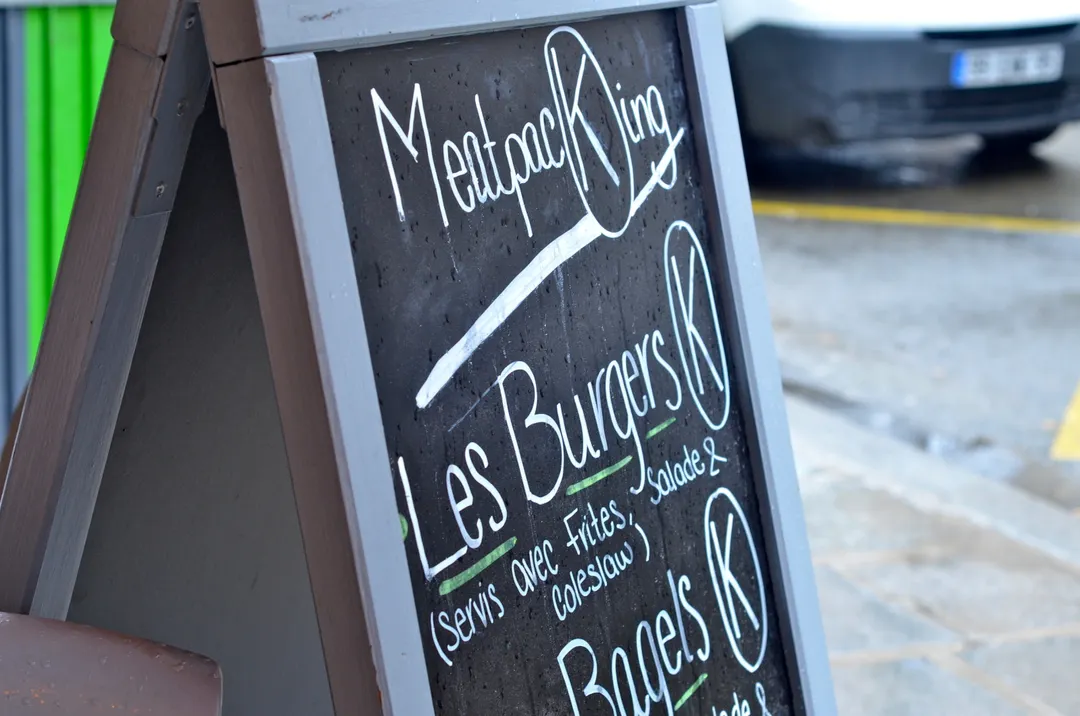 MeatpacKing
Les Burgers K
(servis avec Frites, Salade &
Coleslaw)
Bagels K